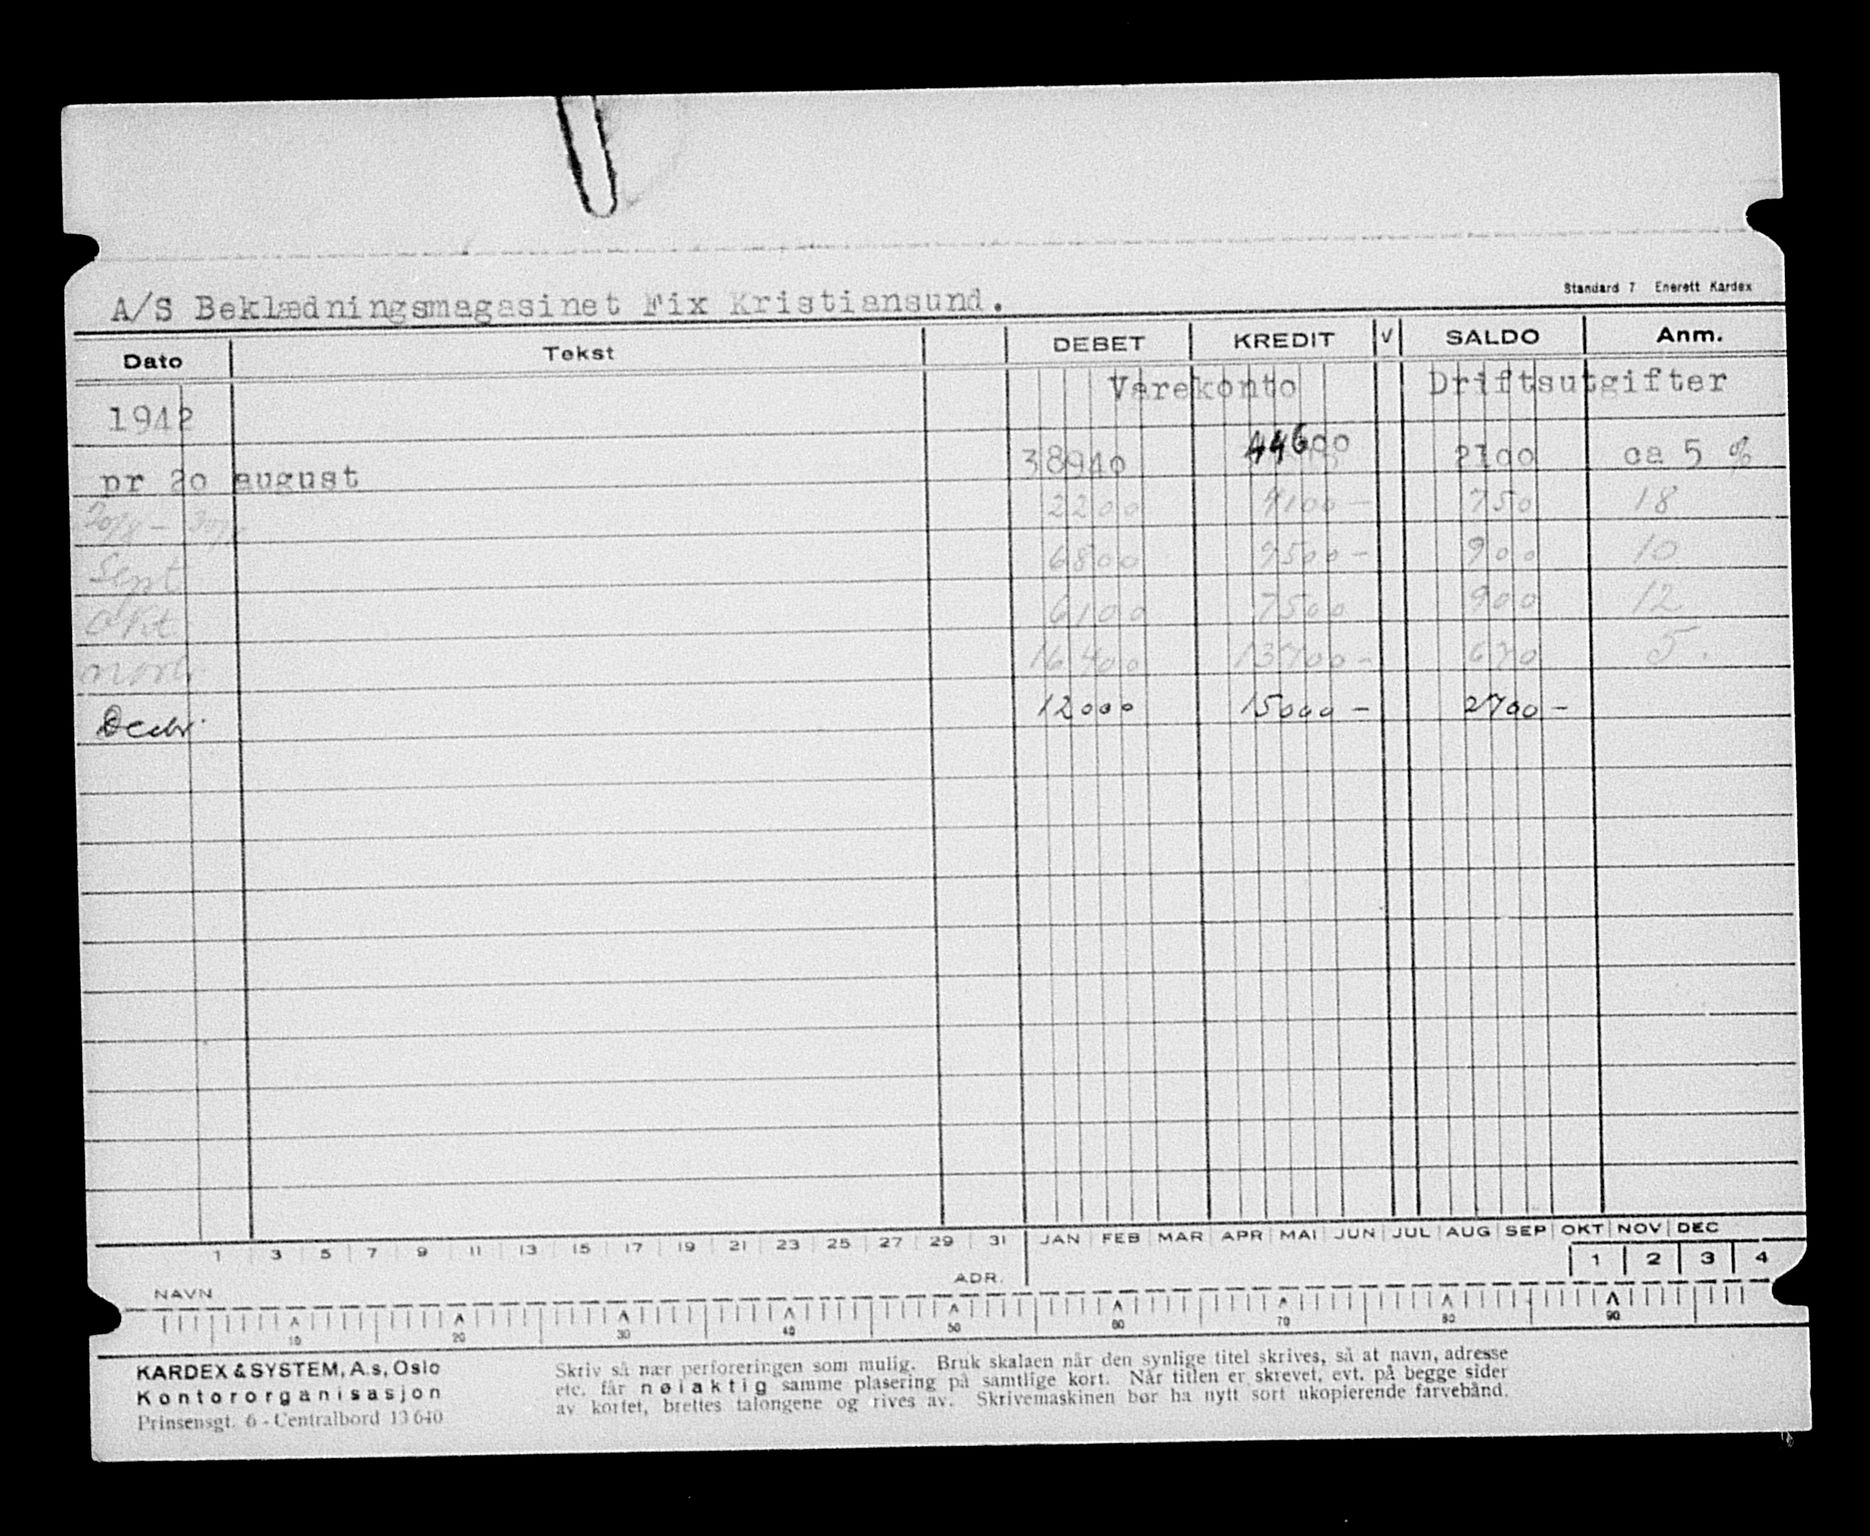 Standard 7 Enerett Kardex
A/S Beklædningsmagasinet Fix Kristiansund.
Dato Tekst DEBET KREDIT V SALDO Anm.
Varekonto Driftsutgifter
1942
pr 20 august 38940 44600 2100 ca 5 %
20/8 - 30/8 2200 4100 - 750 18
Sept 6800 9500 - 900 10
Okt 6100 7500 900 12
Novbr 16400 13700 - 670 5.
Decbr. 12000 15000 - 2700 -
1 3 5 7 9 11 13 15 17 19 21 23 25 27 29 31 JAN FEB MAR APR MAI JUN JUL AUG SEP OKT NOV DEC
1 2 3 4
NAVN ADR.
10 20 30 40 50 60 70 80 90
KARDEX & SYSTEM, A.s, Oslo
Kontororganisasjon
Prinsensgt. 6 - Centralbord 13640
Skriv så nær perforeringen som mulig. Bruk skalaen når den synlige titel skrives, så at navn, adresse
etc. får nøiaktig samme plasering på samtlige kort. Når titlen er skrevet, evt. på begge sider
av kortet, brettes talongene og rives av. Skrivemaskinen bør ha nytt sort ukopierende farvebånd.